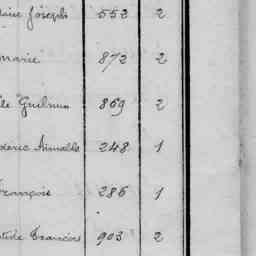 Joseph 552 2
marie 872 2
Guilmin 869 2
deric Aimable 248 1
François 286 1
François 903 2